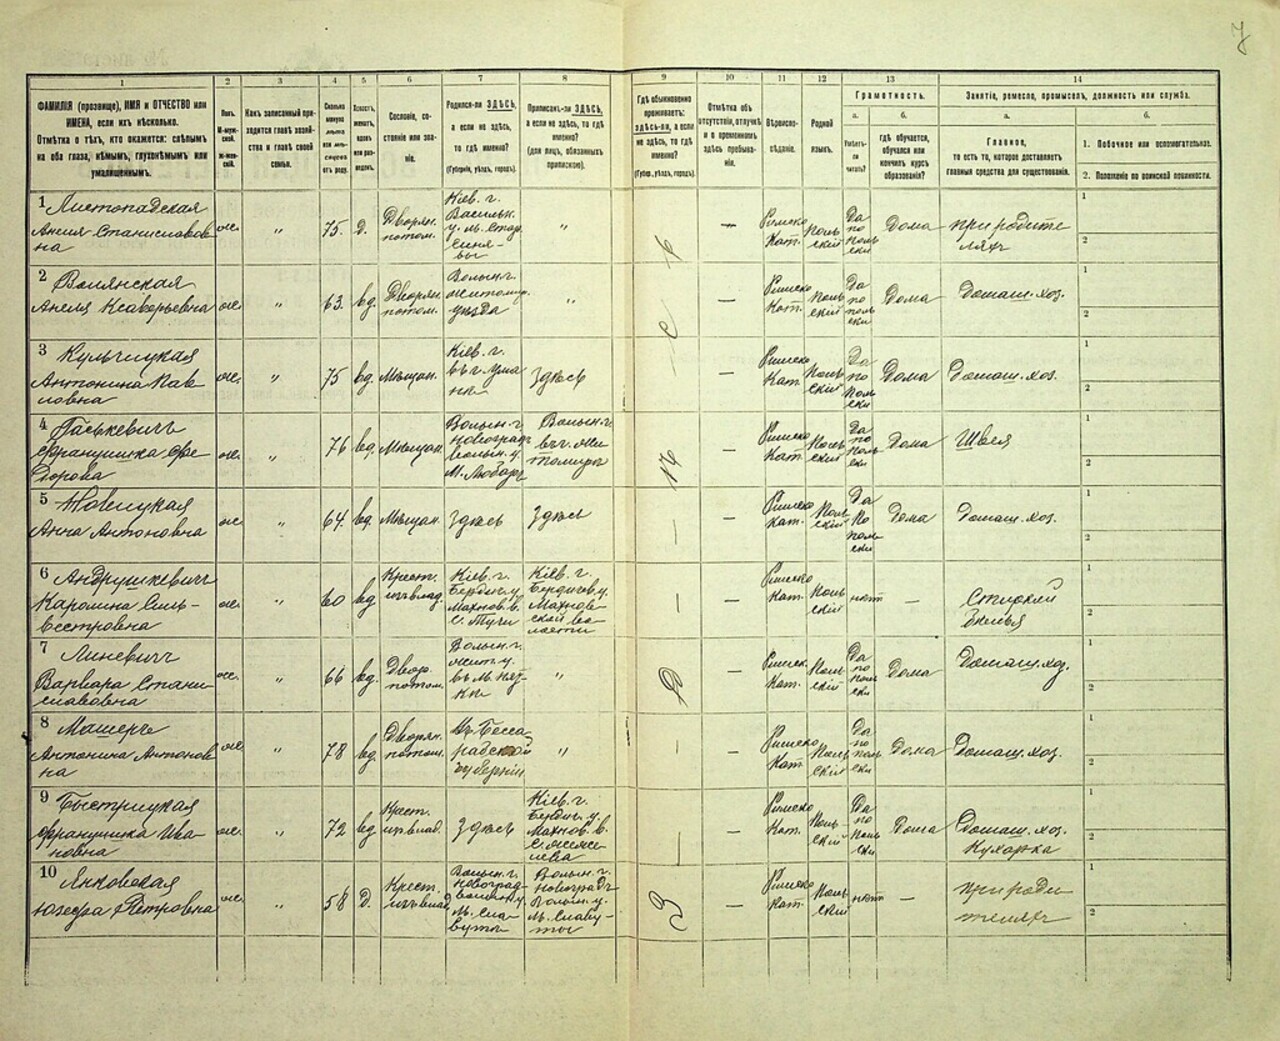 7
1
2
3
4
5
6
7
8
9
10
11
12
13
14
ФАМИЛІЯ (прозвище), ИМЯ и ОТЧЕСТВО или
ИМЕНА, если ихъ нѣсколько.
Отмѣтка о тѣхъ, кто окажется: слѣпымъ
на оба глаза, нѣмымъ, глухонѣмымъ или
умалишеннымъ.
Полъ.
М-мужской.
Ж-женскій.
Какъ записанный приходится главѣ хозяйства и главѣ своей семьи.
Сколько минуло лѣтъ или мѣсяцевъ отъ роду.
Холостъ, женатъ, вдовъ или разведенъ.
Сословіе, состояніе или званіе.
Родился-ли ЗДѢСЬ,
а если не здѣсь,
то гдѣ именно?
(Губернія, уѣздъ, городъ).
Приписанъ-ли ЗДѢСЬ,
а если не здѣсь, то гдѣ
именно?
(для лицъ, обязанныхъ
припискою).
Гдѣ обыкновенно
проживаетъ:
здѣсь-ли, а если
не здѣсь, то гдѣ
именно?
(Губер., уѣздъ, городъ).
Отмѣтка объ
отсутствіи, отлучкѣ
и о временномъ
здѣсь пребываніи.
Вѣроисповѣданіе.
Родной
языкъ.
Грамотность.
а.
Умѣетъ-ли
читать?
б.
гдѣ обучается,
обучался или
кончилъ курсъ
образованія?
Занятіе, ремесло, промыселъ, должность или служба.
а.
Главное,
то есть то, которое доставляетъ
главныя средства для существованія.
б.
1. Побочное или вспомогательное.
2. Положеніе по воинской повинности.
1 Листопадская
Анеля Станиславовна
жс. " 75. д. Дворян. потом.
Кіев. г. Васильк. у. м. Стар. Синявы
" — Римско Кат. Польскій Да по польски Дома при родителяхъ
1
2
2 Волянская
Анеля Ксаверьевна
жс. " 63. вд. Дворян. потом.
Волын. г. Житомир. уѣзда
" — Римско Кат. Польскій Да по польски Дома Домаш. хоз.
1
2
3 Кульчицкая
Антонина Павловна
жс. " 75 вд. Мѣщан.
Кіев. г. въ г. Умани
здѣсь — Римско Кат. Польскій Да по польски Дома Домаш. хоз.
1
2
4 Паськевичъ
Францишка Федорова
жс. " 76 вд. Мѣщан.
Волын. г. Новоград Волын. у. М. Любаръ
Волын. г. въ г. Житомиръ
— Римско Кат. Польскій Да по польски Дома Швея
1
2
5 Новицкая
Анна Антоновна
жс. " 64. вд. Мѣщан. Здѣсь Здѣсь
— Римско Кат. Польскій Да по польски Дома Домаш. хоз.
1
2
6 Андрушкевичъ
Каролина Сильвестровна
жс. " 60 вд. Крест. изъ влад.
Кіев. г. Бердич. у. Махнов. в.
Кіев. г. Бердичев. у. Махновской волости
— Римско Кат. Польскій нѣтъ — Стиркой бѣлья
1
2
7 Линевичъ
Варвара Станиславовна
жс. " 66 вд. Двор. потом.
Волын. г. Жит. у.
" — Римск. Кат. Польскій Да по польски Дома Домаш. хоз.
1
2
8 Машеръ
Антонина Антоновна
жс. " 78 вд. Дворян. потом.
Въ Бессарабской губерніи
" — Римско Кат. Польскій Да по польски Дома Домаш. хоз.
1
2
9 Быстрицкая
Францишка Ивановна
жс. " 72 вд. Крест. изъ влад. Здѣсь
Кіев. г. Бердич. у. Махнов. в.
— Римско Кат. Польскій Да по польски Дома Домаш. хоз. Кухарка
1
2
10 Янковская
Юзефа Петровна
жс. " 58 д. Крест. изъ влад.
Волын. г. Новоград волын. у. М. Славуты
Волын. г. Новоградъ Волын. у. М. Славуты
— Римско Кат. Польскій нѣтъ — при родителяхъ
1
2
З — д — ѣ — с — ь